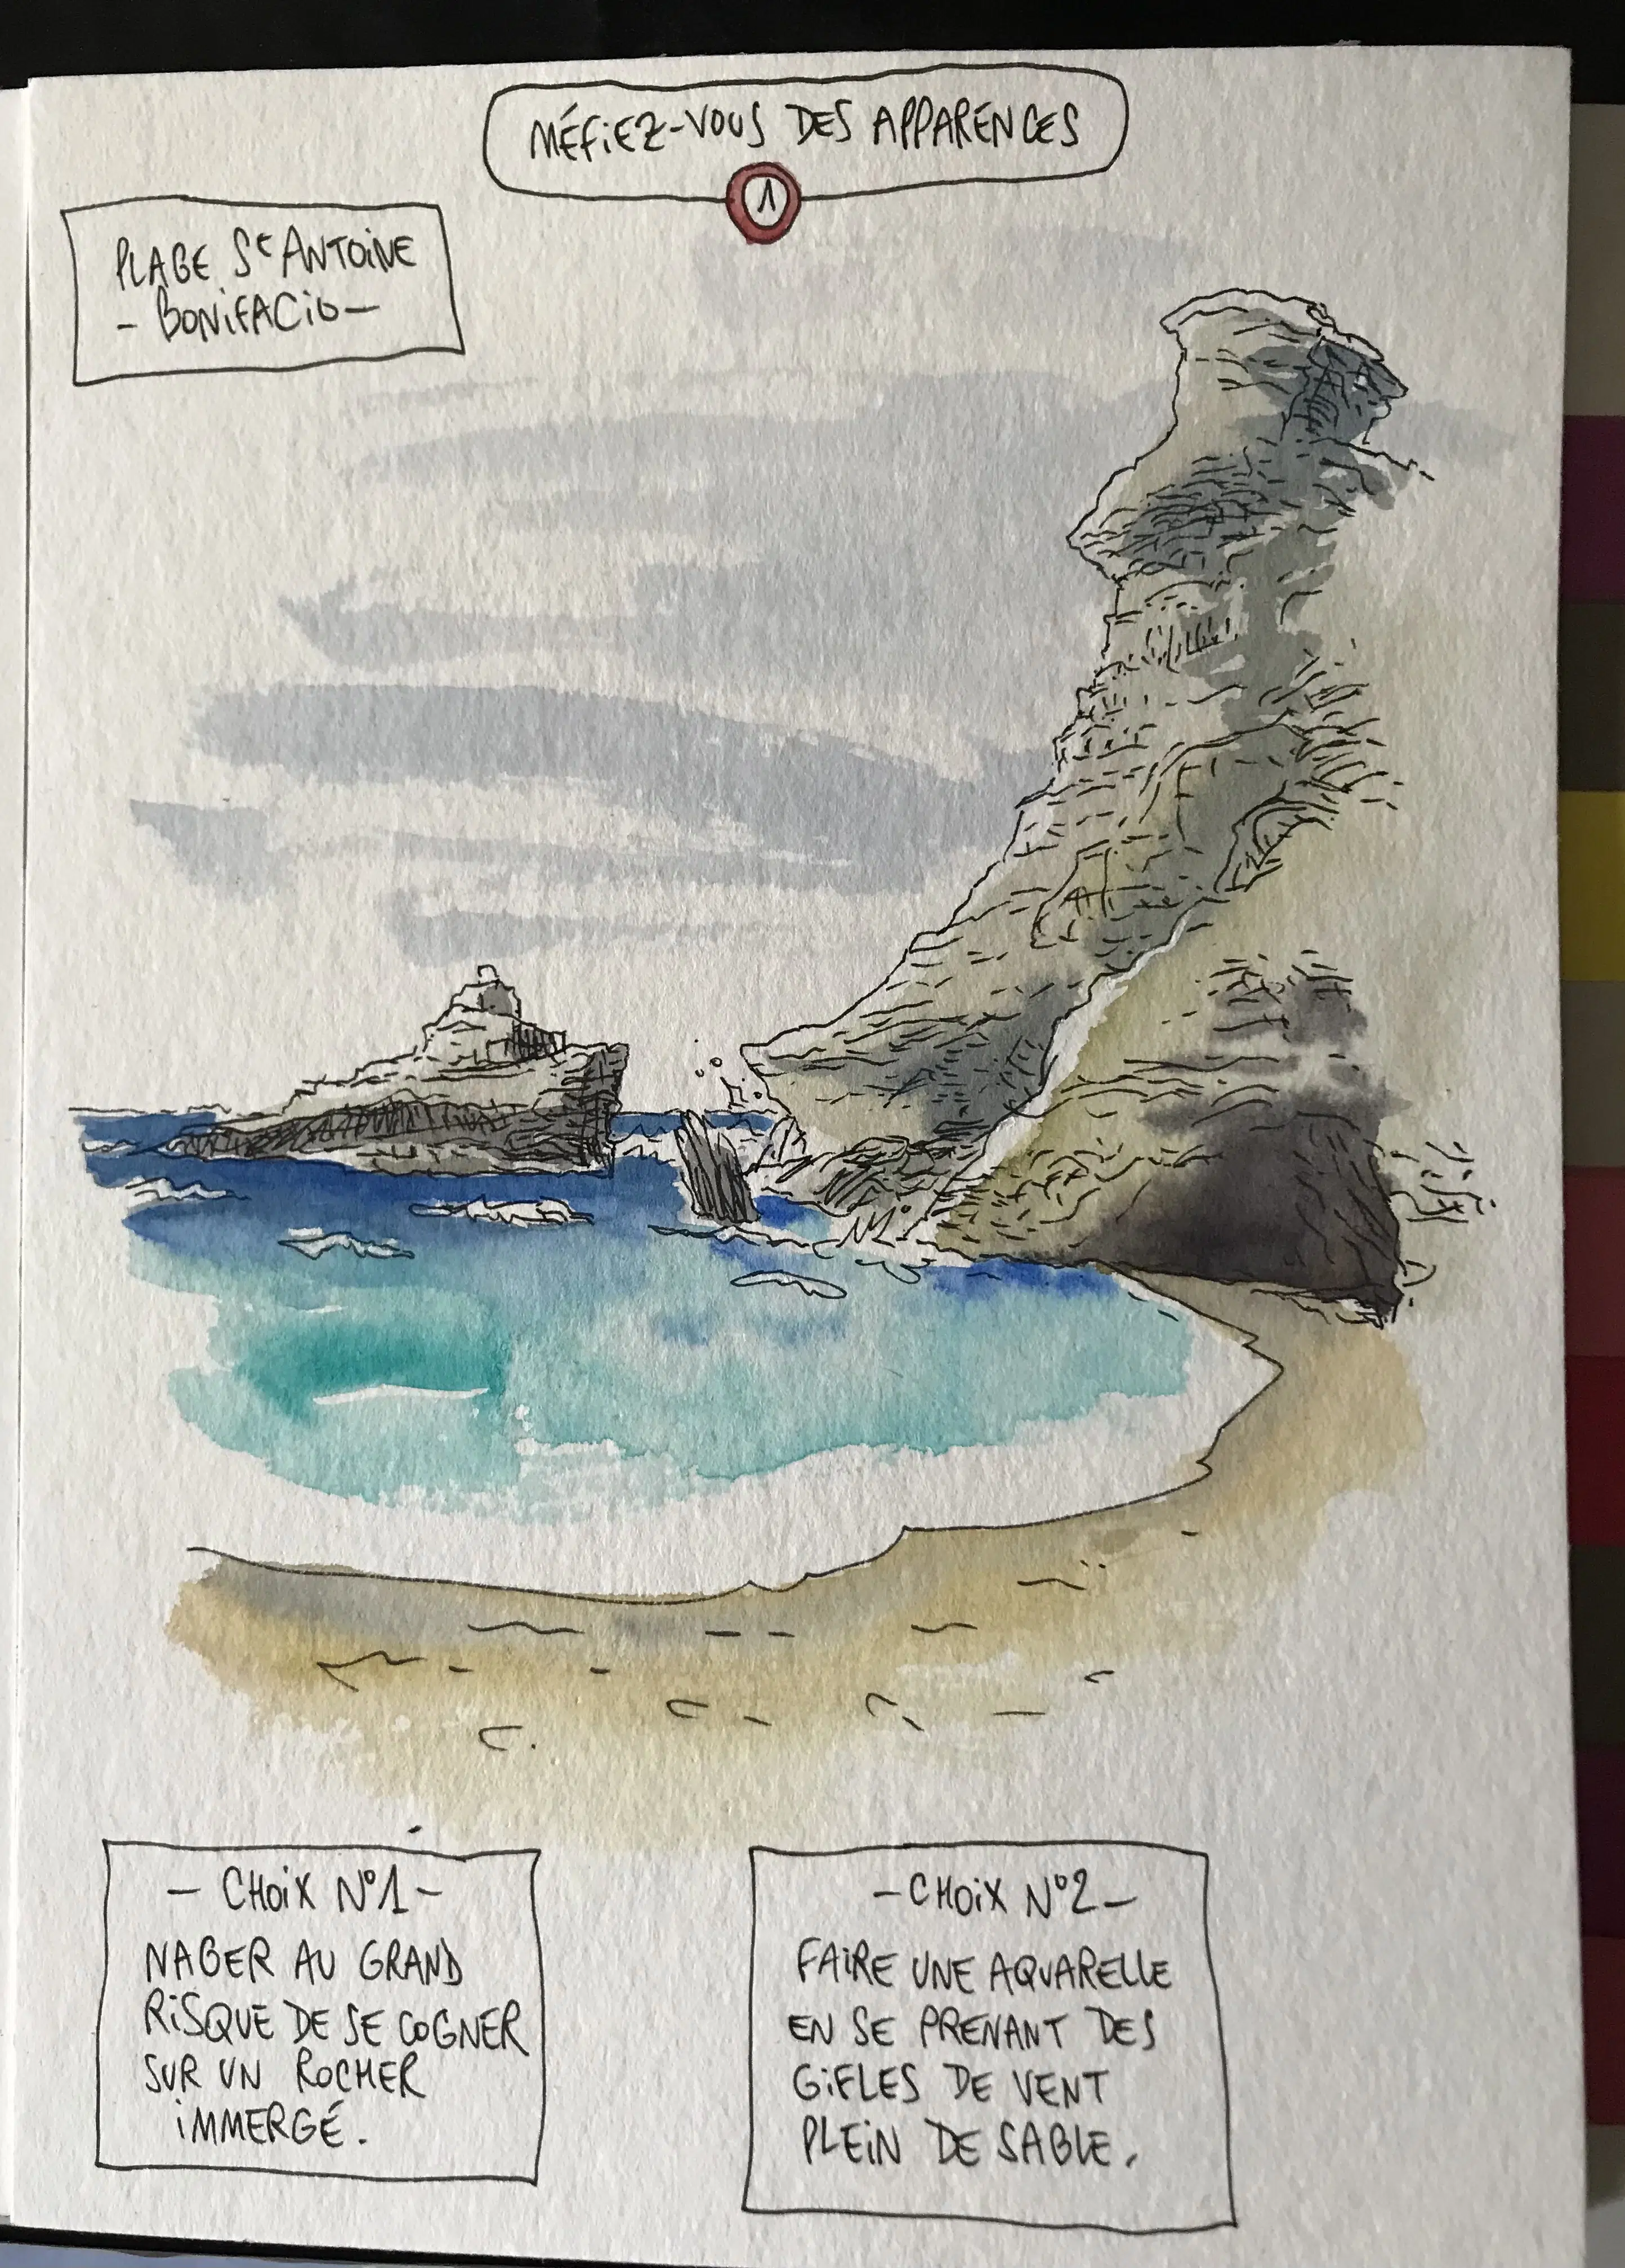 MÉFIEZ-VOUS DES APPARENCES
1
PLAGE St ANTOINE
- BONIFACIO -
- CHOIX N°1 -
NAGER AU GRAND
RISQUE DE SE COGNER
SUR UN ROCHER
IMMERGÉ.
- CHOIX N°2 -
FAIRE UNE AQUARELLE
EN SE PRENANT DES
GIFLES DE VENT
PLEIN DE SABLE.